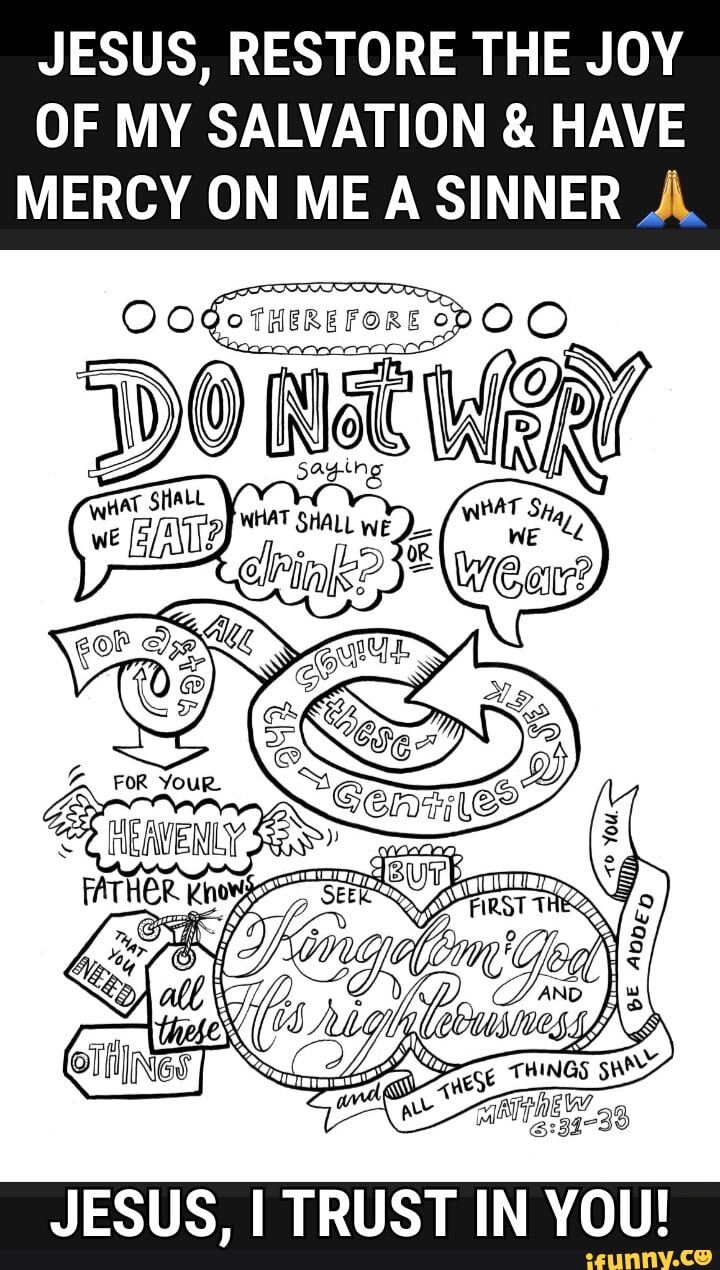 JESUS, RESTORE THE JOY
OF MY SALVATION & HAVE
MERCY ON ME A SINNER 🙏
THEREFORE
DO NOT WORRY
saying
WHAT SHALL
WE EAT?
WHAT SHALL WE
drink?
OR
WHAT SHALL
WE
wear?
For after
ALL
these
things
the Gentiles
SEEK
FOR YOUR
HEAVENLY
FATHER knows
THAT
YOU
NEED
all
these
THINGS
BUT
SEEK
FIRST THE
Kingdom OF God
AND
His righteousness
and
ALL THESE THINGS SHALL
BE ADDED
TO YOU.
MATThEW
6:31-33
JESUS, I TRUST IN YOU!
ifunny.co